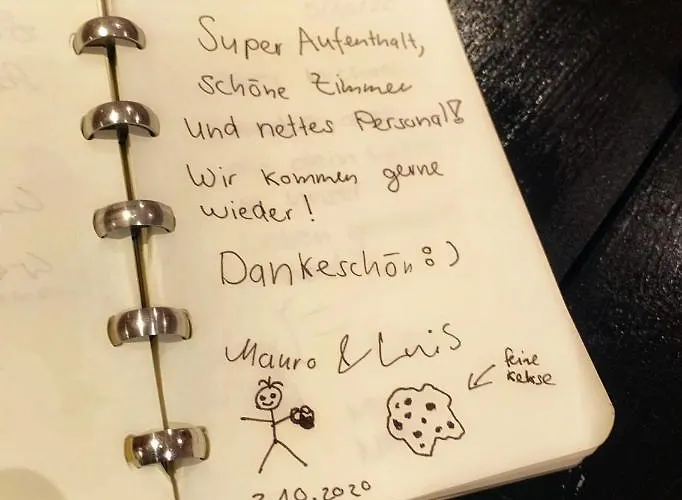 Super Aufenthalt,
schöne Zimmer
und nettes Personal!
Wir kommen gerne
wieder!
Dankeschön :)
Mauro & Luis
feine
Kekse
2.10.2020